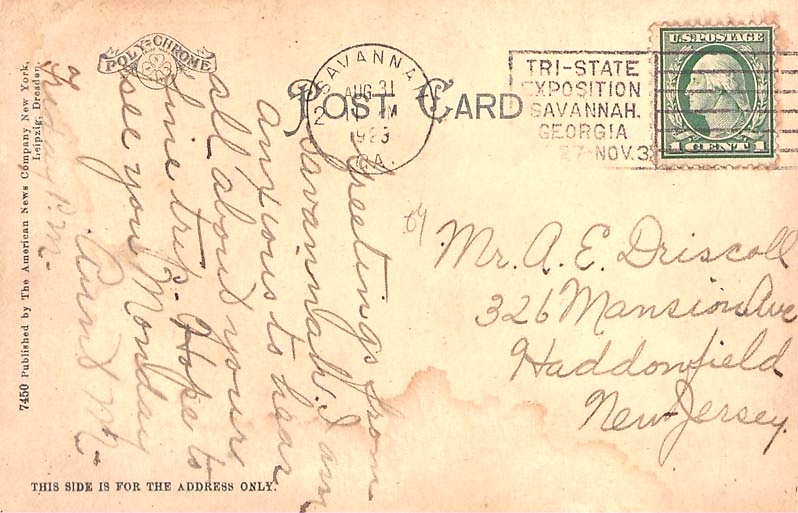 POLY-CHROME
POST CARD
SAVANNAH
AUG 31
M
1923
GA.
TRI-STATE
EXPOSITION
SAVANNAH.
GEORGIA
27-NOV.3
U.S. POSTAGE
1 CENT 1
Greetings from
Savannah. I am
anxious to hear
all about your
fine trip. Hope to
see you Monday
Aunt M.
Friday P.M.
Mr. A. E. Driscoll
326 Mansion Ave
Haddonfield
New Jersey.
7450 Published by The American News Company New York,
Leipzig, Dresden.
THIS SIDE IS FOR THE ADDRESS ONLY.